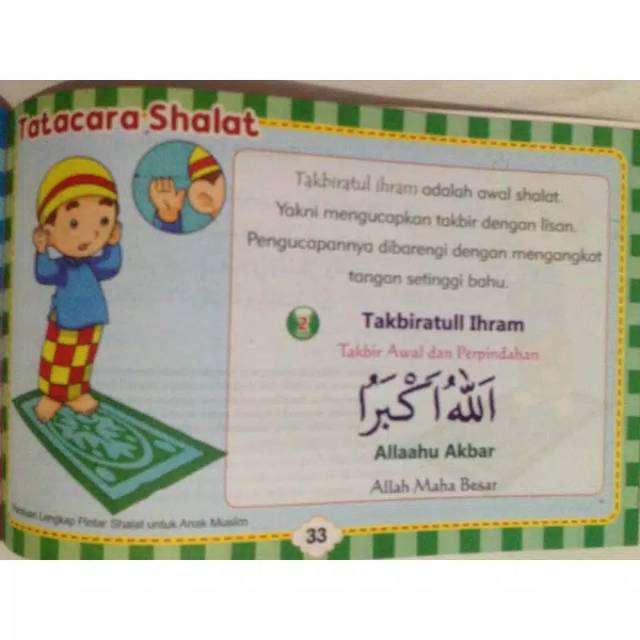 Tatacara Shalat
Takbiratul ihram adalah awal shalat.
Yakni mengucapkan takbir dengan lisan.
Pengucapannya dibarengi dengan mengangkat
tangan setinggi bahu.
2 Takbiratull Ihram
Takbir Awal dan Perpindahan
اَللّٰهُ اَكْبَرُا
Allaahu Akbar
Allah Maha Besar
Lengkap Pintar Shalat untuk Anak Muslim
33